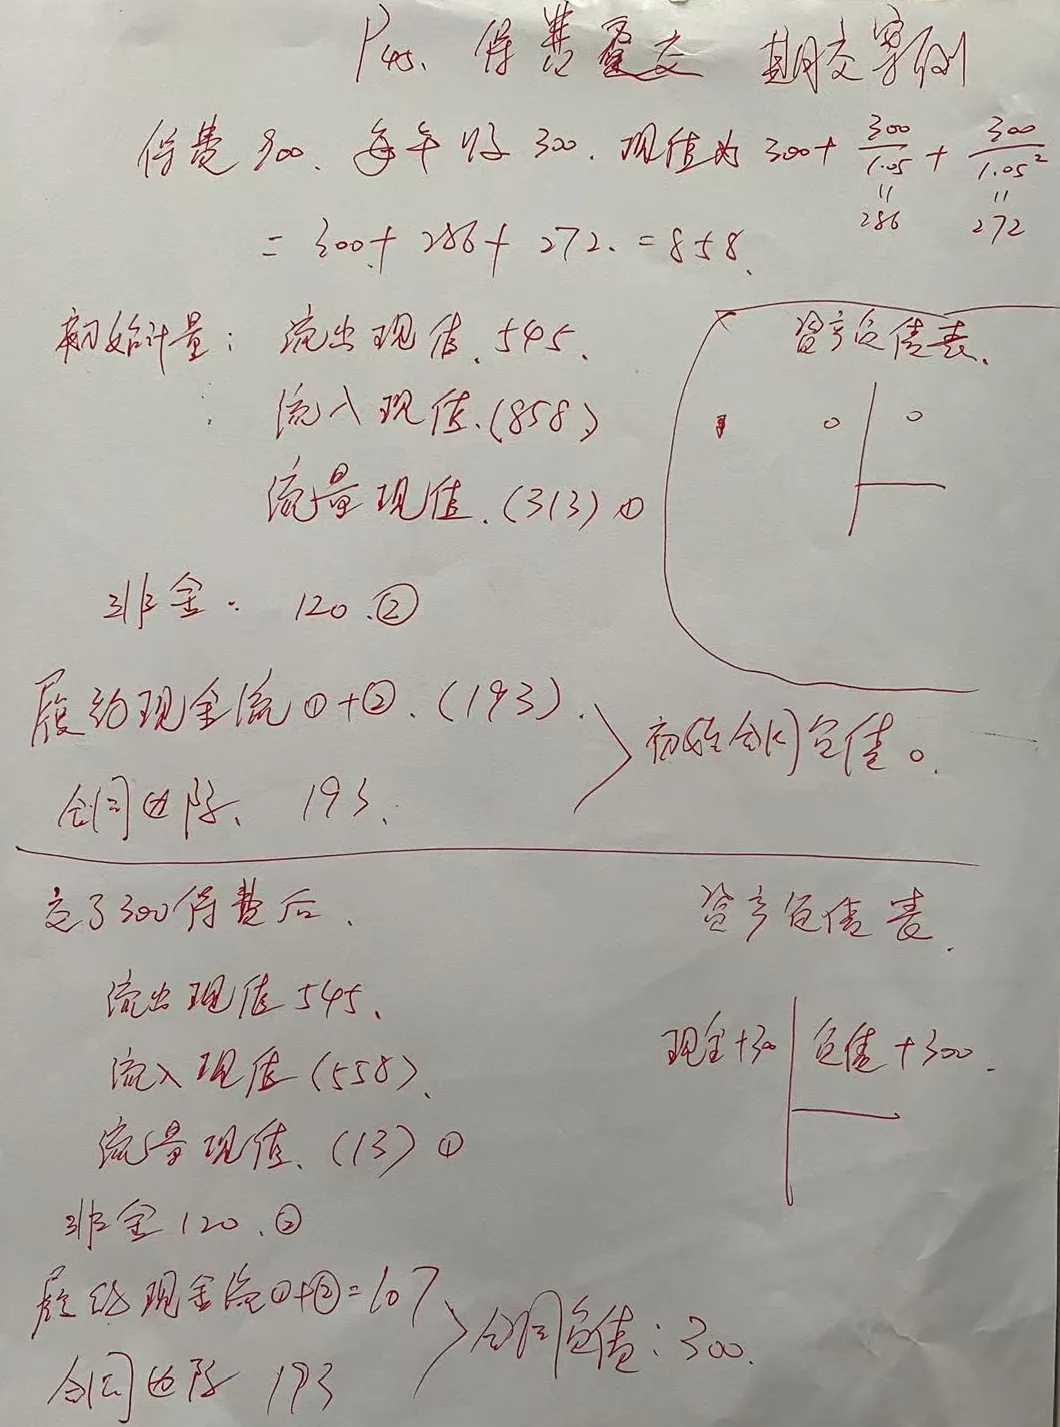 P45. 保费趸交 期交案例
保费900、每年收300.现值为300+300/1.05+300/1.05²
= 286 = 272
=300+286+272.=858.
初始计量: 流出现值.545.
流入现值.(858)
流量现值.(313)①
资产负债表.
0 0
非金. 120.②
履约现金流①+②.(193).
合同边际、193.
初始合同负债0.
交了300保费后.
流出现值545.
流入现值(558).
流量现值.(13)①
非金120.②
履约现金流①+②=107
合同边际 193
合同负债:300.
资产负债表.
现金+300 负债+300.